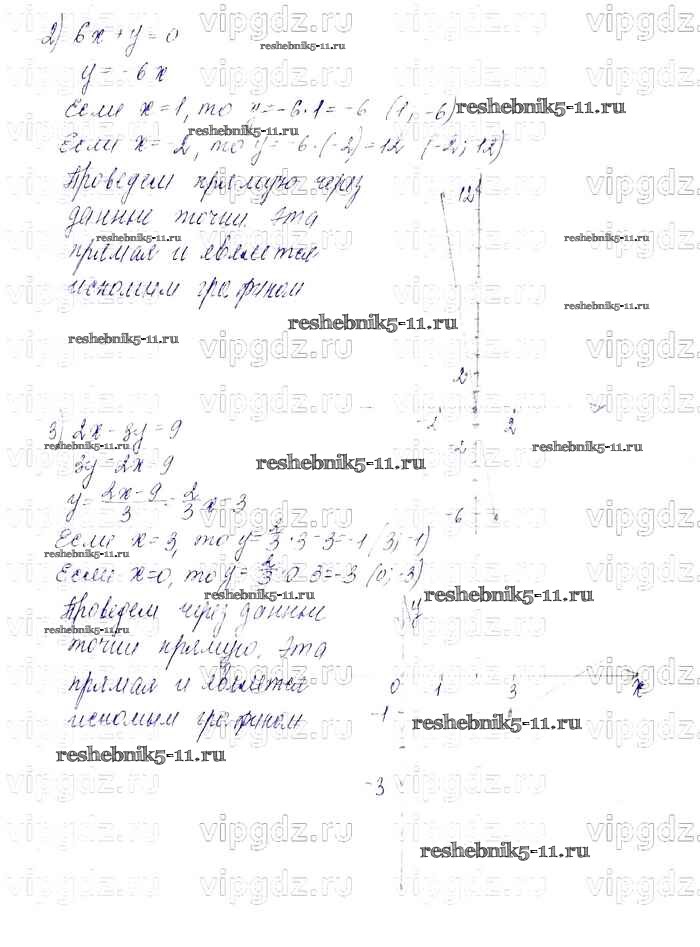 2) 6x + y = 0
y = -6x
Если x = 1, то y = -6·1 = -6 (1; -6)
Если x = -2, то y = -6·(-2) = 12 (-2; 12)
Проведем прямую через
данные точки. Эта
прямая и является
искомым графиком
12
2
-2 2
-2
-6
3) 2x - 3y = 9
3y = 2x - 9
y = (2x - 9)/3 = 2/3 x - 3
Если x = 3, то y = 2/3 · 3 - 3 = -1 (3; -1)
Если x = 0, то y = 2/3 · 0 - 3 = -3 (0; -3)
Проведем через данные
точки прямую. Эта
прямая и является
искомым графиком
y
0 1 3 x
-1
-3
vipgdz.ru
reshebnik5-11.ru